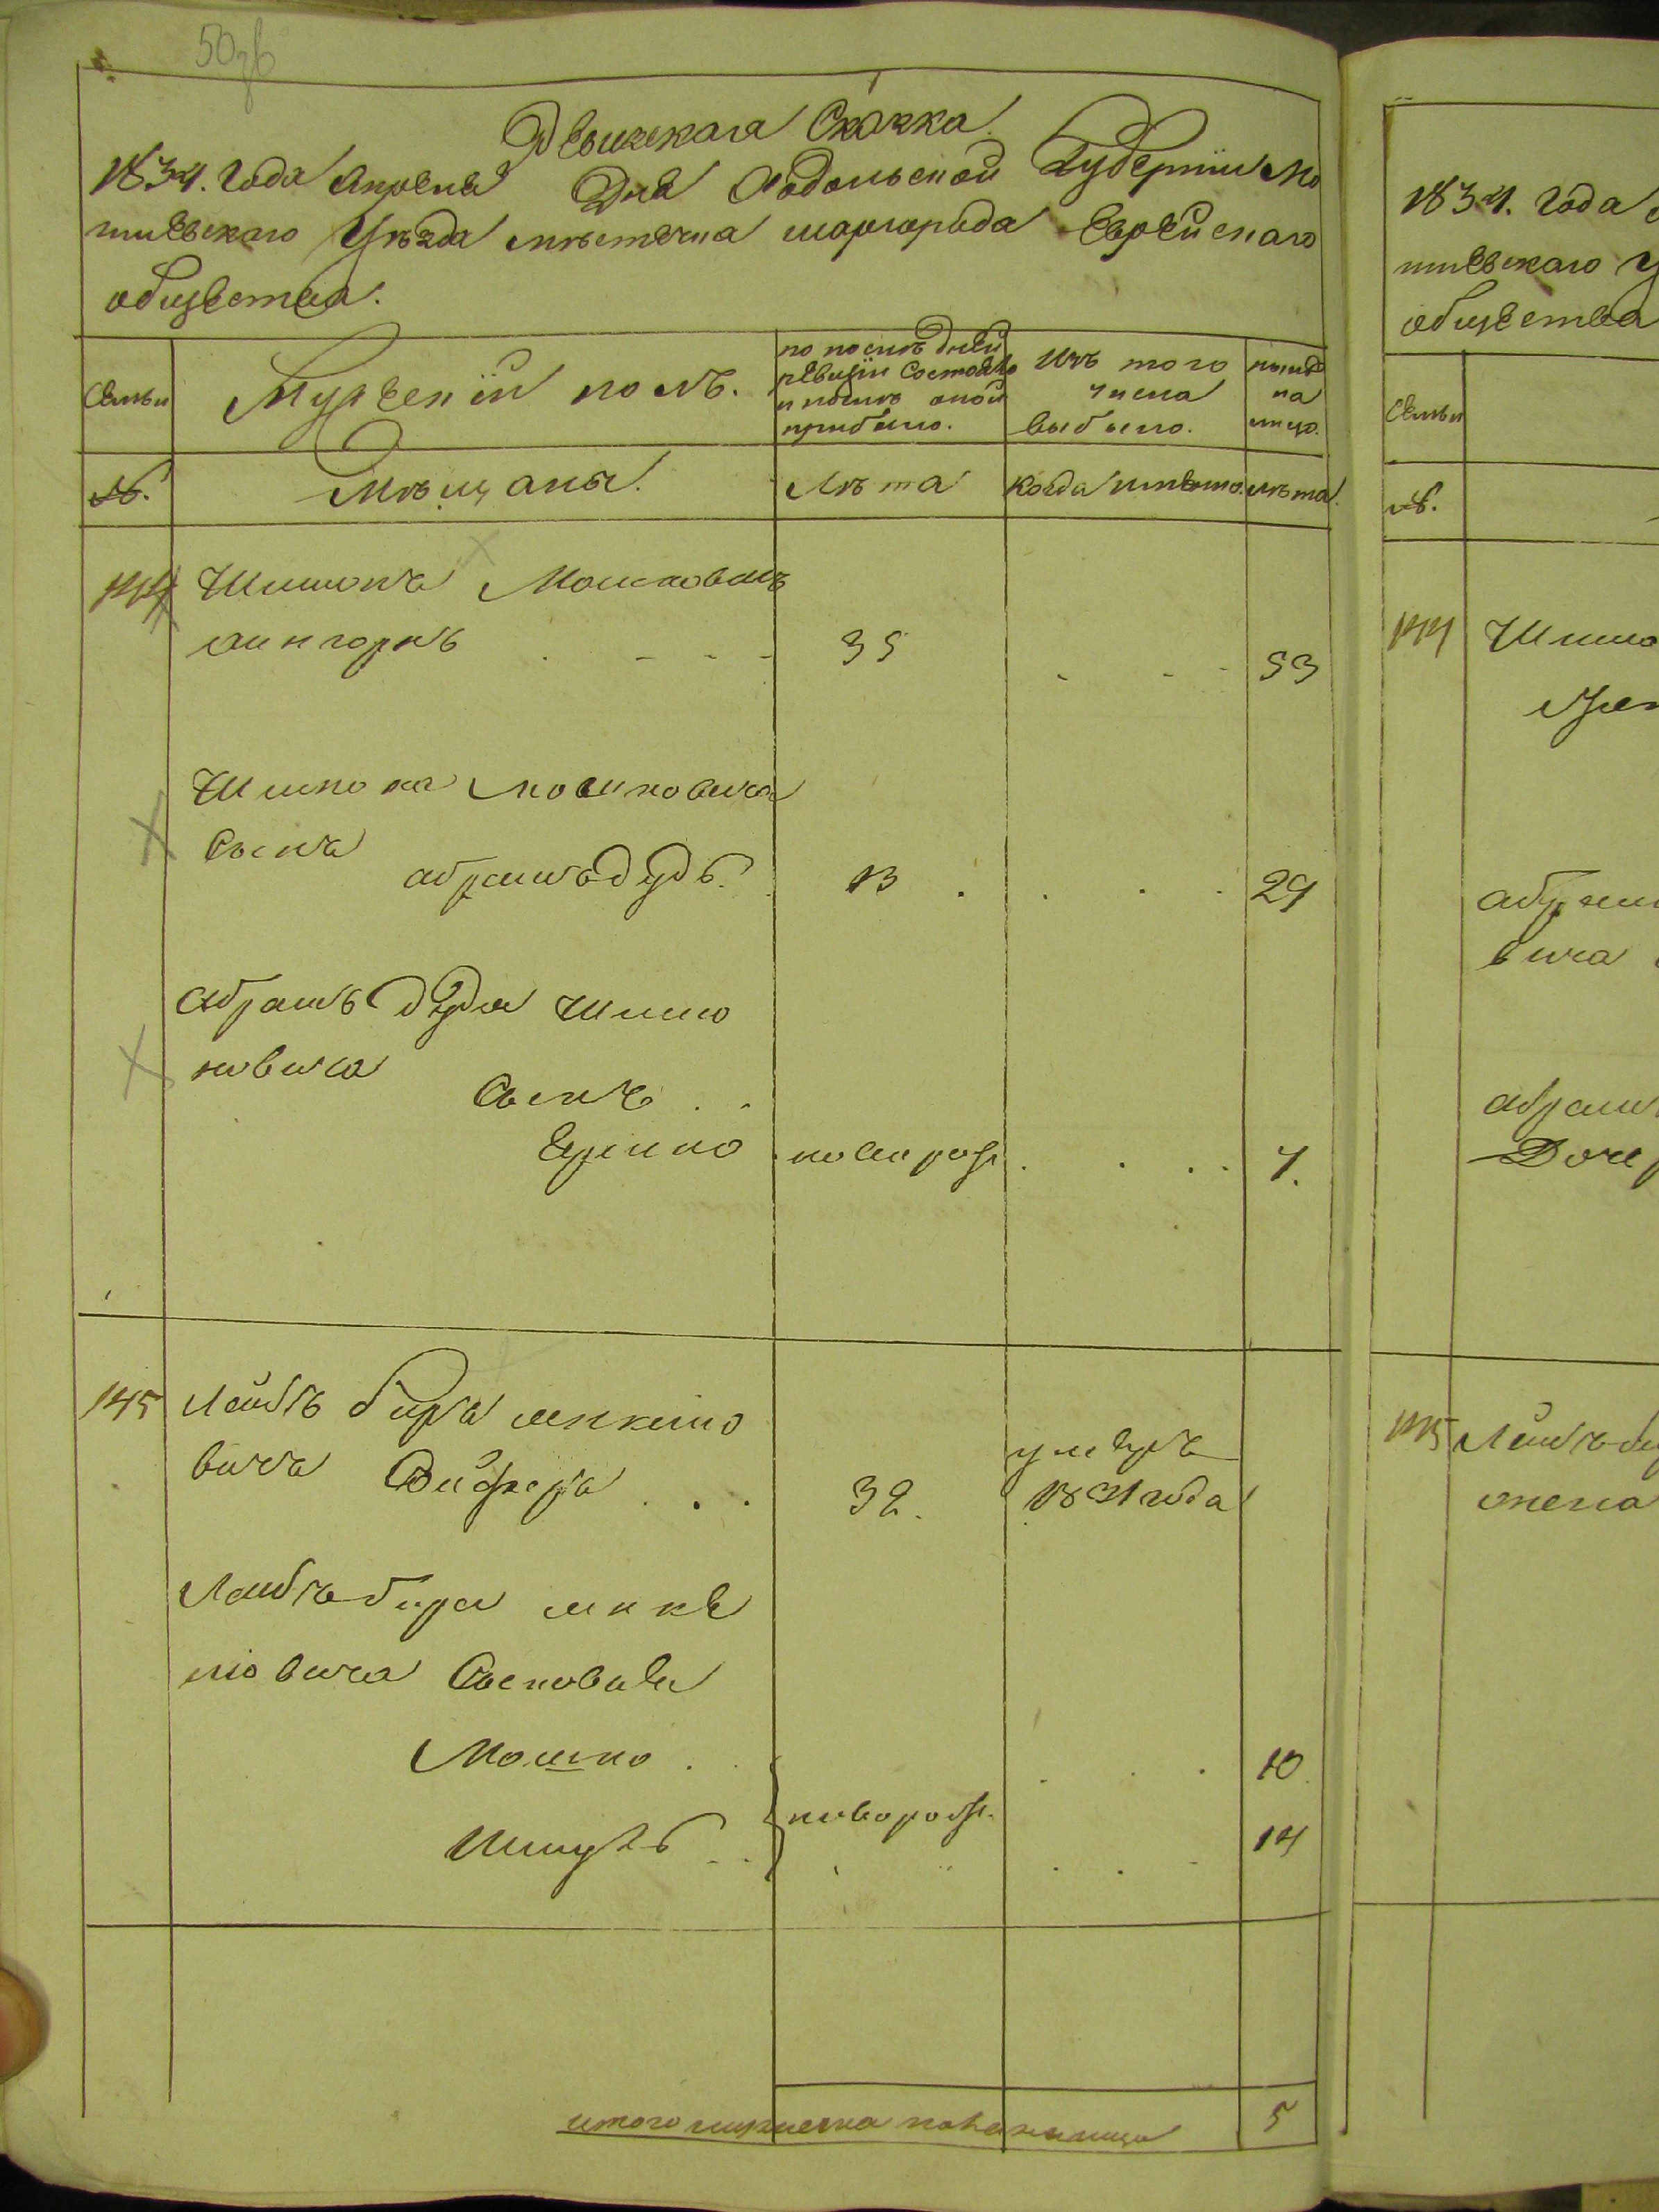 50зв
Ревижская Сказка
1834. Года Апреля Дня Подольской Губернии Мо
гилевскаго Уѣзда мѣстечка шаргорода Еврейскаго
общества.
Семьи
Мужеский полъ.
по послѣдней
ревизiи Состояло
и послѣ оной
прибыло.
Изъ того
числа
выбыло.
нынѣ
на
лицо.
№.
Мѣщаны.
Лѣта
Когда имянно.
лѣта.
144 Шимонъ Мошковичъ
35 53
Шимона мошковича
Сынъ
абрамъ дудь. 13 29
Абрамъ дудя Шимо
новича
Сынъ
новорож 7.
145 Лейбъ биръ
вичъ
32.
умеръ
1831 года
Лейбъ бира
лiовича Сыновья
Мошко 10
новорож.
14
итого мужеска пола на лицо 5
1834. Года
тилевскаго У
общества
Семьи
№.
144 Шимо
абрам
вича
абрам
Дочер
145 Лейбъ би
жена